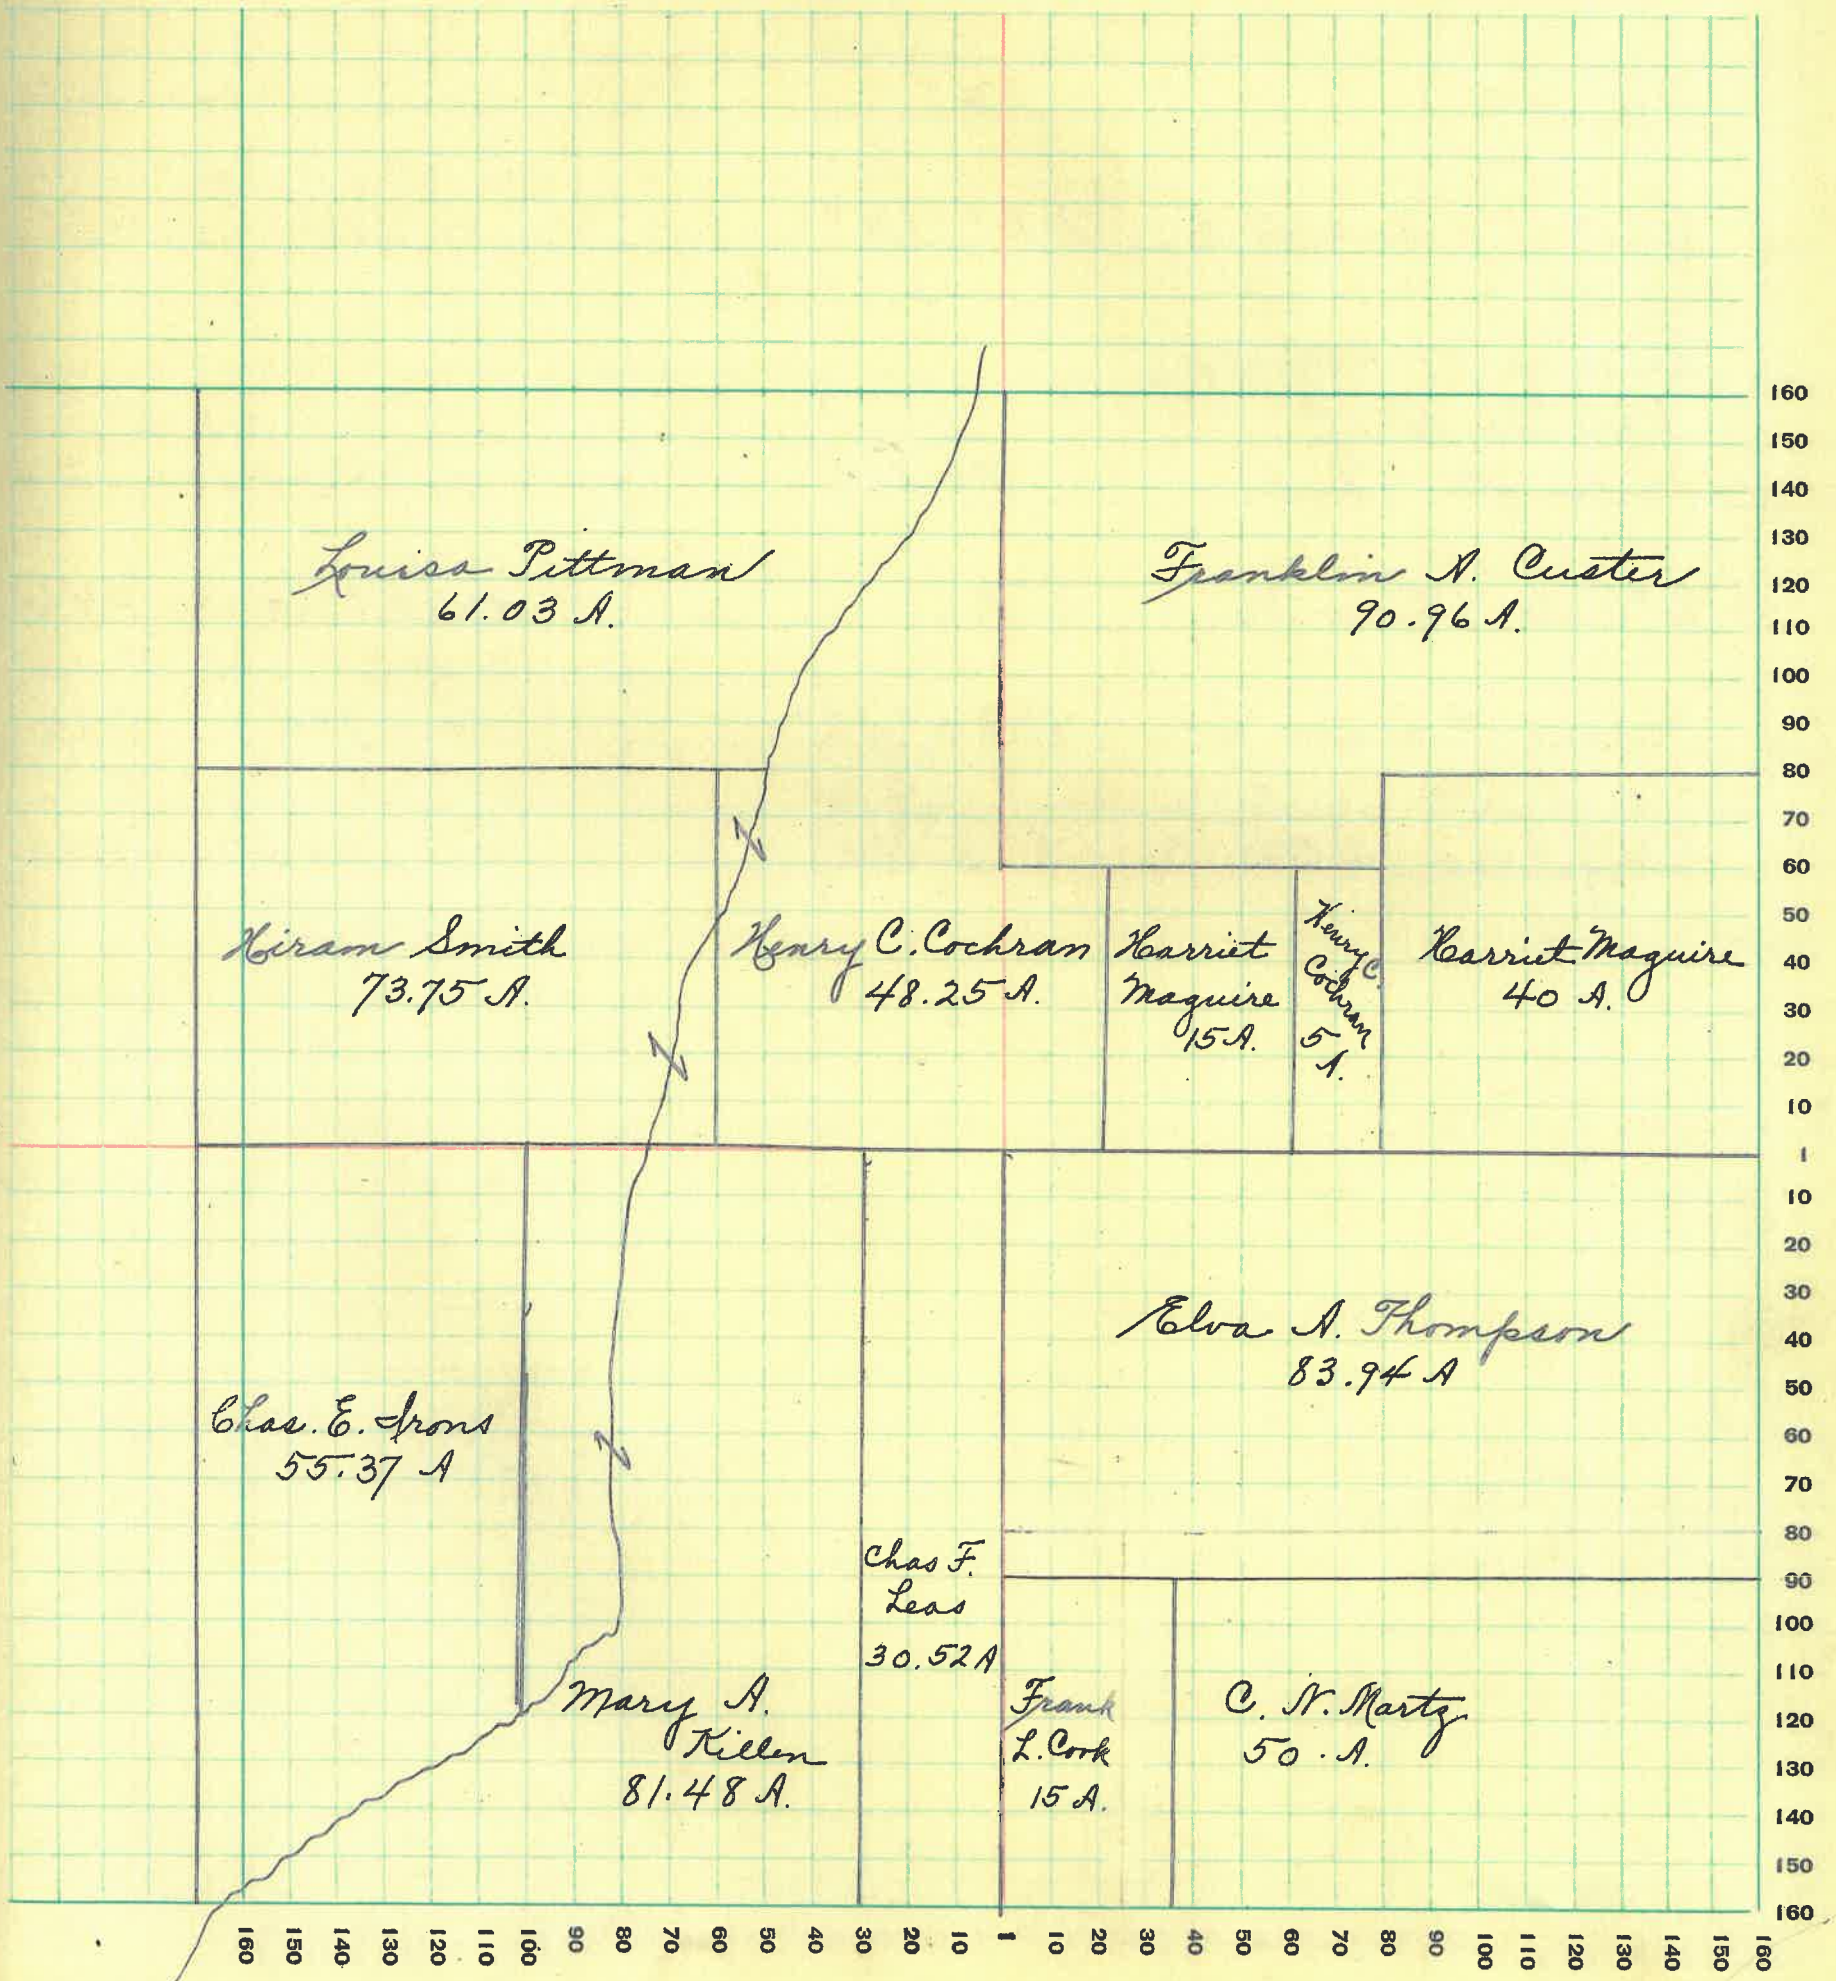 Louisa Pittman
61.03 A.
Franklin A. Custer
90.96 A.
Hiram Smith
73.75 A.
Henry C. Cochran
48.25 A.
Harriet
Maguire
15 A.
Henry C.
Cochran
5
A.
Harriet Maguire
40 A.
Chas. E. Irons
55.37 A
Mary A.
Killen
81.48 A.
Chas F.
Leas
30.52 A
Elva A. Thompson
83.94 A
Frank
L. Cook
15 A.
C. N. Martz
50. A.
160
150
140
130
120
110
100
90
80
70
60
50
40
30
20
10
1
10
20
30
40
50
60
70
80
90
100
110
120
130
140
150
160
160 150 140 130 120 110 100 90 80 70 60 50 40 30 20 10 1 10 20 30 40 50 60 70 80 90 100 110 120 130 140 150 160